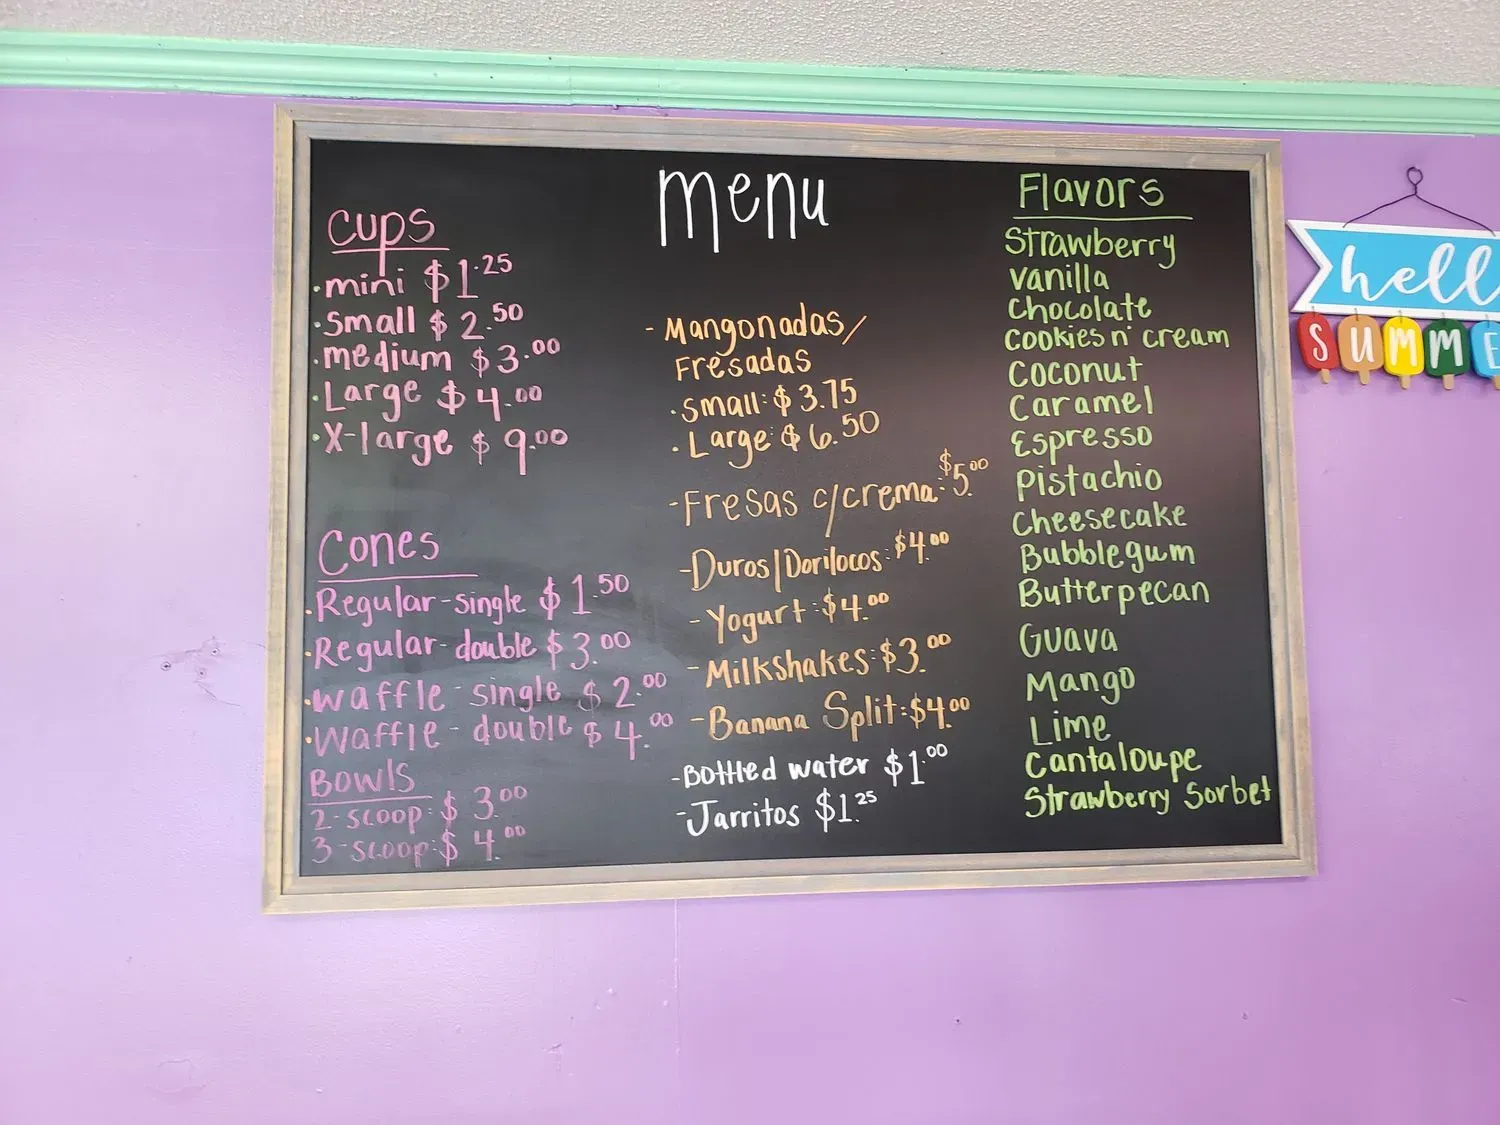 menu
cups
·mini $1.25
·small $2.50
·medium $3.00
·Large $4.00
·X-large $9.00
Cones
·Regular-single $1.50
·Regular-double $3.00
·waffle-single $2.00
·waffle-double $4.00
BOWLS
2-scoop: $3.00
3-scoop: $4.00
- Mangonadas/
Fresadas
·small: $3.75
·Large: $6.50
-Fresas c/crema: $5.00
-Duros/Dorilocos: $4.00
-Yogurt: $4.00
-Milkshakes: $3.00
-Banana Split: $4.00
-Bottled water $1.00
-Jarritos $1.25
Flavors
Strawberry
vanilla
Chocolate
Cookies n' cream
Coconut
Caramel
Espresso
Pistachio
Cheesecake
Bubblegum
Butterpecan
Guava
Mango
Lime
Cantaloupe
Strawberry Sorbet
hell
SUMME